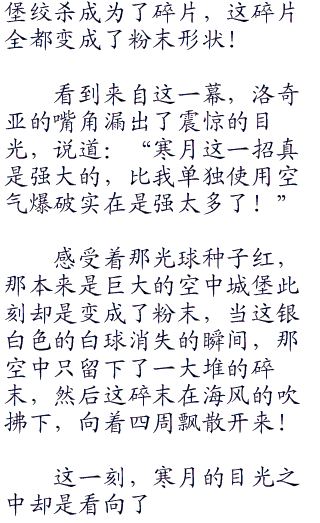 堡绞杀成为了碎片，这碎片
全都变成了粉末形状！
看到来自这一幕，洛奇
亚的嘴角漏出了震惊的目
光，说道：“寒月这一招真
是强大的，比我单独使用空
气爆破实在是强太多了！”
感受着那光球种子红，
那本来是巨大的空中城堡此
刻却是变成了粉末，当这银
白色的白球消失的瞬间，那
空中只留下了一大堆的碎
末，然后这碎末在海风的吹
拂下，向着四周飘散开来！
这一刻，寒月的目光之
中却是看向了